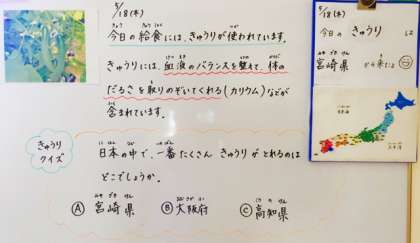 5/18(木)
今日の給食には、きゅうりが使われています。
きゅうりには、血液のバランスを整えて、体の
だるさを取りのぞいてくれる(カリウム)などが
含まれています。
きゅうり
クイズ
日本の中で、一番たくさん きゅうりが とれるのは
どこでしょうか。
Ⓐ 宮崎県 Ⓑ 大阪府 Ⓒ 高知県
5/18(木)
今日の きゅうり は
宮崎県 から来たよ